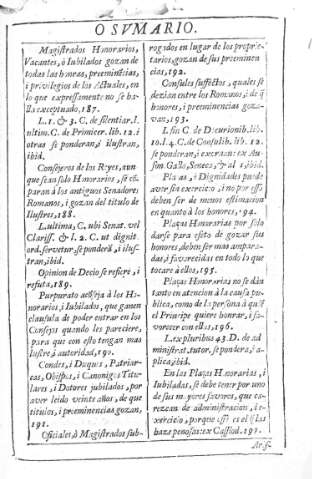 O SUMARIO.
Magistrados Honorarios,
Vacantes, ò Iubilados gozan de
todas las honras, preeminẽcias,
i privilegios de los Actuales, en
lo que expressamente no se ha-
lla exceptuado, 187.
L. 1. & 3. C. de silentiar. l.
ultim. C. de Primicer. lib. 12. i
otras se ponderan, i ilustran,
ibid.
Consejeros de los Reyes, aun
que sean solo Honorarios, se
paran à los antiguos Senadores
Romanos, i gozan del titulo de
Ilustres, 188.
L. ultima, C. ubi Senat. vel
Clariss. & l. 2. C. ut dignit.
ord. servetur, se ponderã, i ilus-
tran, ibid.
Opinion de Decio se refiere, i
refuta, 189.
Purpurato acõseja à los Ho-
norarios, i Iubilados, que ganen
clausula de poder entrar en los
Consejos quando les pareciere,
para que con esto tengan mas
lustre, i autoridad, 190.
Condes, i Duques, Patriar-
cas, Obispos, i Canonigos Titu-
lares, i Dotores jubilados, por
aver leido veinte años, de que
titulos, i preeminencias gozan,
191.
Oficiales, ò Magistrados sub-
rogados en lugar de los proprie-
tarios, gozan de sus preeminen
cias, 192.
Consules suffectos, quales se
dezian entre los Romanos, i de q̃
honores, i preeminencias goza-
van, 193.
L. fin C. de Decurionib. lib.
10. l. 4. C. de Consulib. lib. 12.
se ponderan, i exornan: ex Au-
son. Gallo, Seneca, & al. ibid.
Plaças, i Dignidades puede
aver sin exercicio, i no por esso
deben ser de menos estimacion
en quanto à los honores, 194.
Plaças Honorarias por solo
darse para esto de gozar sus
honores, deben ser mas ampara-
das, i favorecidas en todo lo que
tocare à ellos, 195.
Plaças Honorarias no se dàn
tanto en atencion à la causa pu-
blica, como de la persona à quiẽ
el Principe quiere honrar, i fa-
vorecer con ellas, 196.
L. ex pluribus 43. D. de ad
ministrat. tutor. se pondera, i
aplica, ibid.
En las Plaças Honorarias, i
Iubiladas, se debe tener por uno
de sus mayores favores, que ca-
rezcan de administracion, i e-
xercicio, porque esso es el
baxa penosas: ex Cassiod. 197.